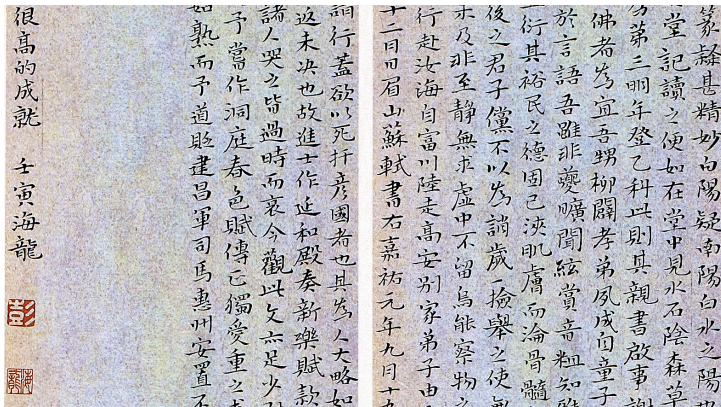 篆隸甚精妙白陽疑南陽白水之陽也
堂記讀之便如在堂中見水石陰森草
易第三明年登乙科此則其親書啟事謝
佛者為宜吾甥柳闢孝弟夙成自童子
於言語吾雖非夔曠聞絃賞音粗知雅
衍其裕民之德固已浹肌膚而淪骨髓
後之君子儻不以為誚歲一撿舉之使無
未及非至靜無求虛中不留烏能察物之
行赴汝海自富川陸走高安別家弟子由
十二日日眉山蘇軾書右嘉祐元年九月十九
詞行蓋欲以死扞彥國者也其為人大略如
返未決也故進士作延和殿奏新樂賦款
諸人哭之皆過時而哀今觀此文亦足少
予嘗作洞庭春色賦傳正獨愛重之求
如熟而予道貶建昌軍司馬惠州安置不
很高的成就 壬寅海龍
彭
海龍